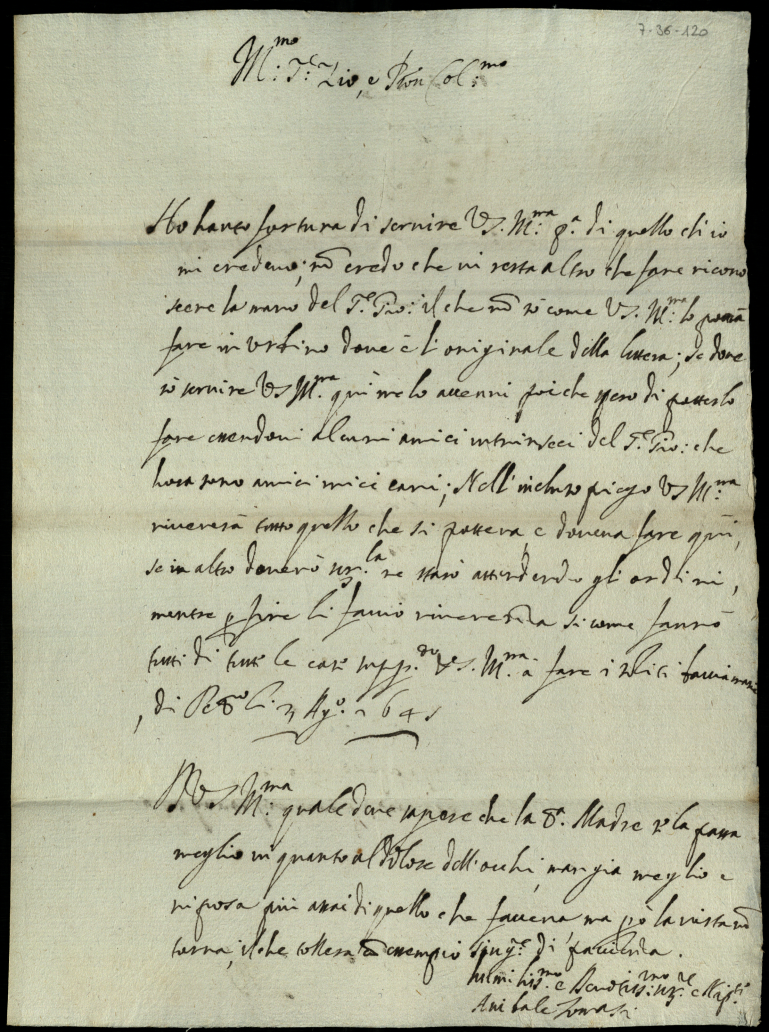 7-36-120
M:mo Sr: Zio, e Pron Col:mo
Ho hauto fortuna di seruire VS. M:ma p.a di quello ch' io
mi credeuo; nō credo che ui resta altro che fare ricono
scere la mano del che nō sò come VS. M:ma lo possa
fare in Urbino doue è l'originale della lettera; se douerò
seruire VS M:ma quì me lo accenni poiche spero di poterlo
fare essendoui alcuni amici intrinseci del che
hora sono amici miei cari; Nell'incluso piego VS M:ma
riceuerà tutto quello che si poteua, e doueua fare quì,
se in altro douerò seru.la ne starò attendendo gli ordini,
mentre p fine li faccio riuerenza si come fanno
tutti di tutte le case supp.do VS. M:ma à fare i soliti
di li Ago. 1645
VS M:ma quale deue sapere che la S.a Madre se la passa
meglio in quanto al dolore dell'occhi, mangia meglio e
riposa più assai di quello che faceua ma però la uista nō
torna, il che tollera cō essempio di pacienza.
humiliss:mo e Deuotiss:mo e Nip.te
Anibale Tomasi